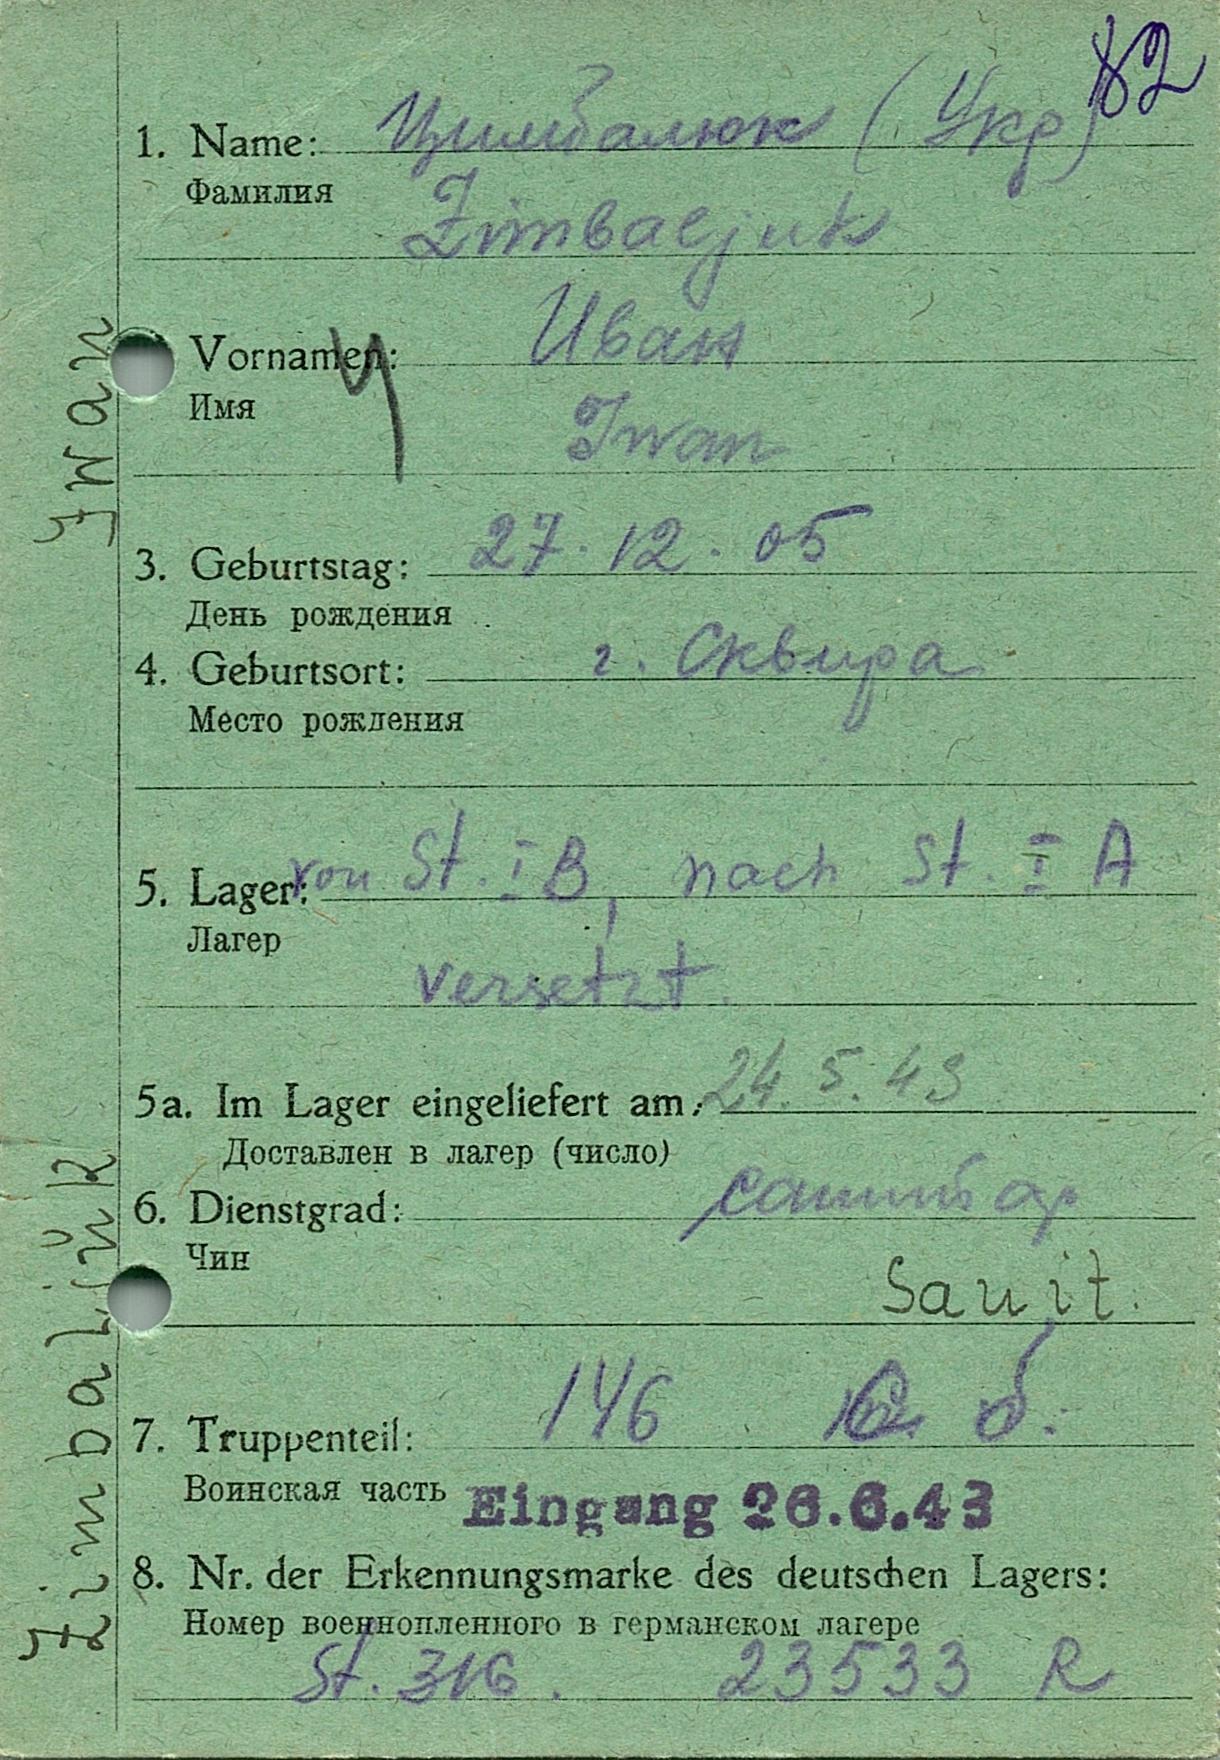 82
1. Name: Цимбалюк (Укр)
Фамилия
Zimbaljuk
Vornamen: Иван
Имя
Iwan
3. Geburtstag: 27.12.05
День рождения
4. Geburtsort: г. Сквира
Место рождения
5. Lager: von St. I B, nach St. I A
Лагер
versetzt.
5a. Im Lager eingeliefert am: 24.5.43
Доставлен в лагер (число)
6. Dienstgrad: санитар
Чин
Sanit.
7. Truppenteil: 146 б.
Воинская часть
Eingang 26.6.43
8. Nr. der Erkennungsmarke des deutschen Lagers:
Номер военнопленного в германском лагере
St. 316. 23533 R
Zimbaljuk Iwan